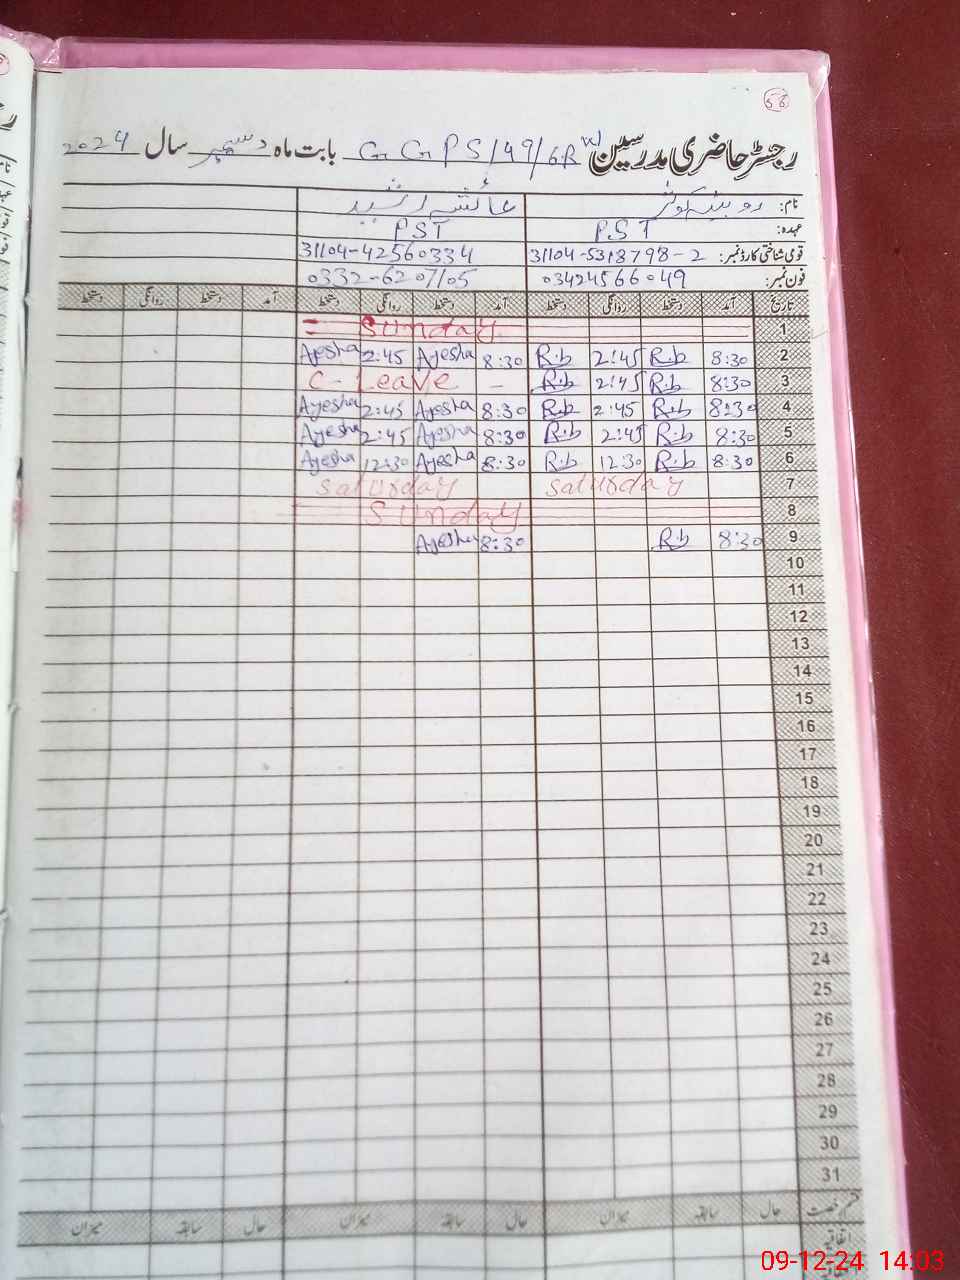 56
رجسٹر حاضری مدرسین GGPS/49/6R(W) بابت ماہ دسمبر سال 2024
نام: روبینہ کوثر عائشہ رشید
عہدہ: PST PST
قومی شناختی کارڈ نمبر: 31104-5318798-2 31104-42560334
فون نمبر: 03424566049 0332-6207105
تاریخ آمد دستخط روانگی دستخط آمد دستخط روانگی دستخط آمد دستخط روانگی دستخط
1 Sunday
2 8:30 R.b 2:45 R.b 8:30 Ayesha 2:45 Ayesha
3 8:30 R.b 2:45 R.b - C-Leave
4 8:30 R.b 2:45 R.b 8:30 Ayesha 2:45 Ayesha
5 8:30 R.b 2:45 R.b 8:30 Ayesha 2:45 Ayesha
6 8:30 R.b 12:30 R.b 8:30 Ayesha 12:30 Ayesha
7 saturday saturday
8 Sunday
9 8:30 R.b 8:30 Ayesha
10
11
12
13
14
15
16
17
18
19
20
21
22
23
24
25
26
27
28
29
30
31
قسم رخصت حال سابقہ میزان حال سابقہ میزان حال سابقہ میزان
اتفاقیہ
09-12-24 14:03